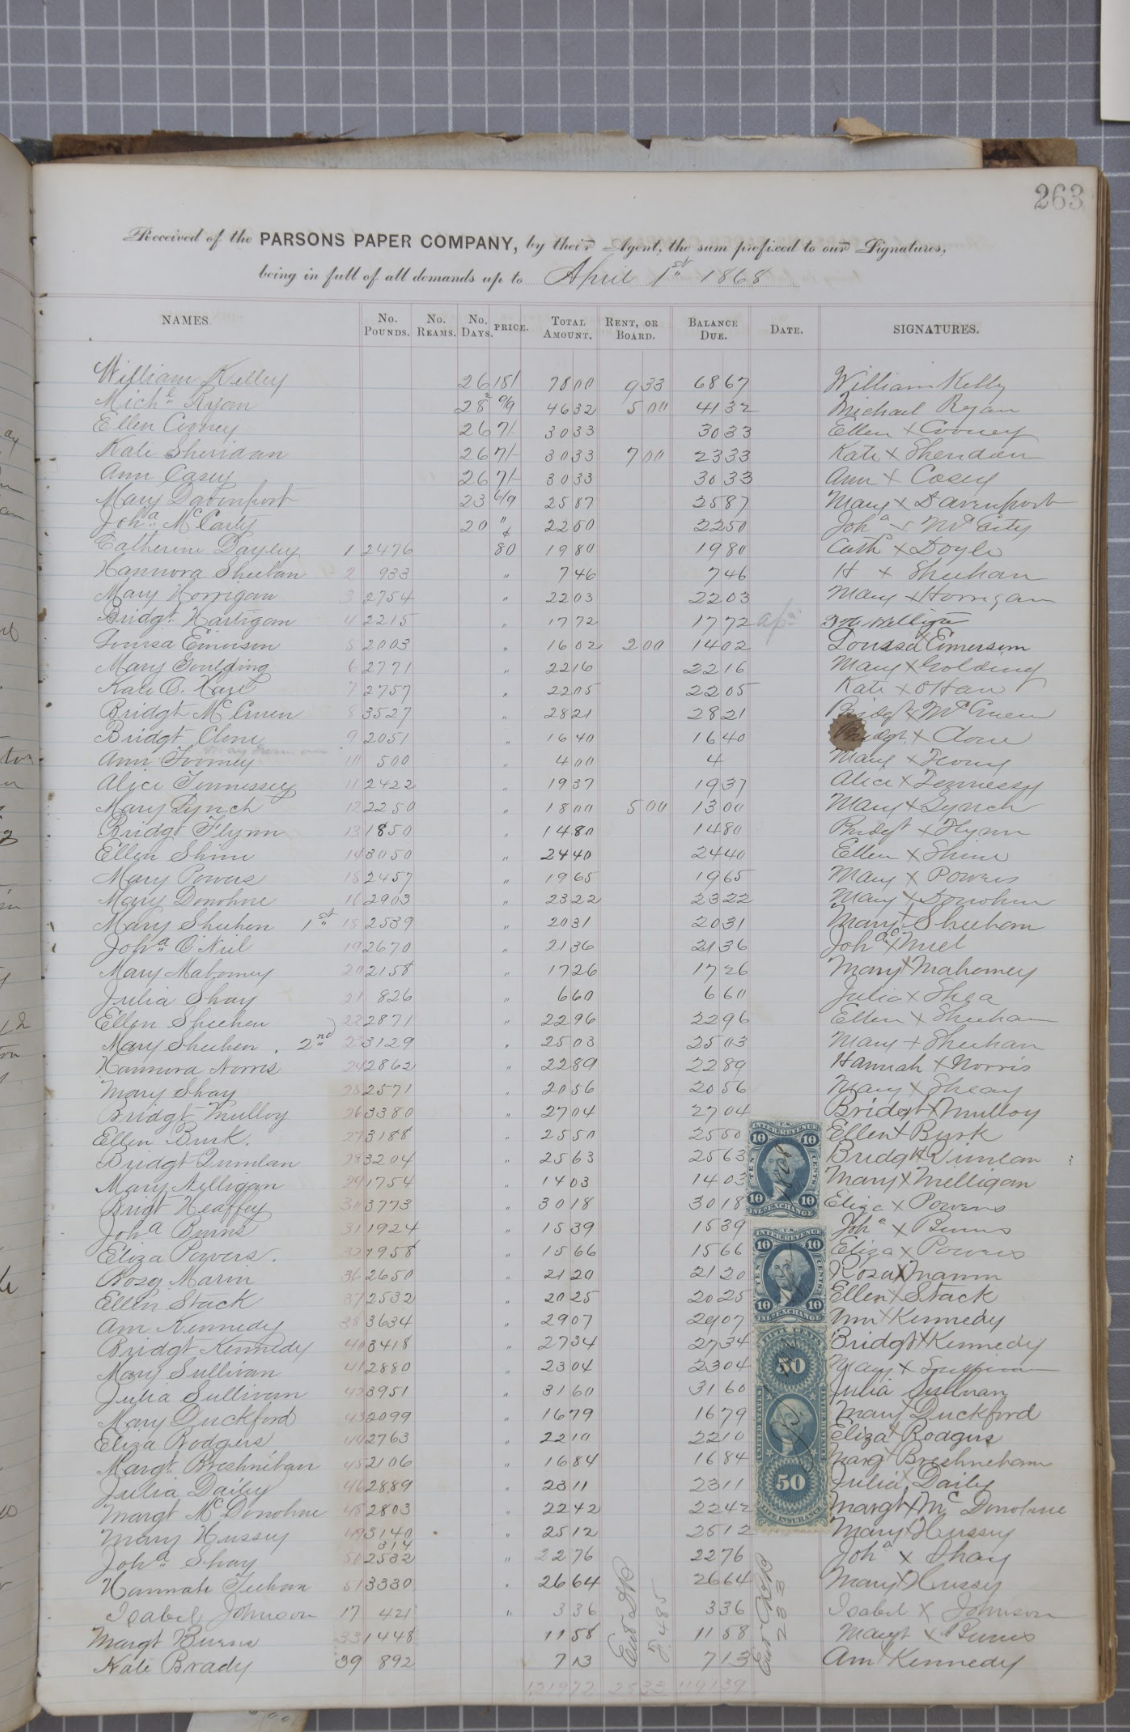 263
Received of the PARSONS PAPER COMPANY, by their Agent, the sum prefixed to our Signatures,
being in full of all demands up to April 1st 1868
NAMES. No. POUNDS. No. REAMS. No. DAYS. PRICE. TOTAL AMOUNT. RENT, OR BOARD. BALANCE DUE. DATE. SIGNATURES.
William Kelley 26 18/ 7800 933 6867 William Kelly
Michl Ryan 28 4632 500 4132 Michael Ryan
Ellen Cooney 26 7/ 3033 3033 Ellen X Cooney
Kate Sheridan 26 7/ 3033 700 2333 Kate X Sheridan
Ann Casey 26 7/ 3033 3033 Ann X Casey
Mary Davenport 23 6/9 2587 2587 Mary X Davenport
Joha McCarty 20 " 2250 2250 Joha X McCarty
Catherine Dayley 1 2476 80 1980 1980 Cath X Doyle
Hannora Sheehan 2 933 " 746 746 H X Sheehan
Mary Horrigan 3 2754 " 2203 2203 Mary X Horrigan
Bridgt Hartigan 4 2215 " 1772 1772
Louisa Emerson 5 2003 " 1602 200 1402 Louisa Emerson
Mary Goulding 6 2771 " 2216 2216 Mary X Golding
Kate O. Hare 7 2757 " 2205 2205 Kate X OHare
Bridgt McCruen 8 3527 " 2821 2821 Bridgt X McCruen
Bridgt Clune 9 2051 " 1640 1640 Bridgt X Clune
Ann Toomey 10 500 " 400 4 Mary X
Alice Tennessey 11 2422 " 1937 1937 Alice X Tennessy
Mary Lynch 12 2250 " 1800 500 1300 Mary X Lynch
Bridgt Flynn 13 1850 " 1480 1480 Bridgt X Flynn
Ellen Shine 14 3050 " 2440 2440 Ellen X Shine
Mary Powers 15 2457 " 1965 1965 Mary X Powers
Mary Donohue 16 2903 " 2322 2322 Mary X Donohue
Mary Sheehen 1st 18 2539 " 2031 2031 Mary X Sheeham
Joha O'Niel 19 2670 " 2136 2136 Joha X Niel
Mary Mahomey 20 2158 " 1726 1726 Mary X Mahomey
Julia Shay 21 826 " 660 660 Julia X Shea
Ellen Sheehen 22 2871 " 2296 2296 Ellen X Sheehan
Mary Sheehen. 2nd 23 3129 " 2503 2503 Mary X Sheehan
Hannora Norris 24 2862 " 2289 2289 Hannah X Norris
Mary Shay 25 2571 " 2056 2056 Mary X Sheay
Bridgt Mulloy 26 3380 " 2704 2704 Bridgt X Mulloy
Ellen Burk. 27 3188 " 2550 2550 Ellen X Burk
Bridgt Quinlan 28 3204 " 2563 2563 Bridgt X Quinlan
Mary Milligan 29 1754 " 1403 1403 Mary X Melligan
Brigt Heaffey 30 3773 " 3018 3018 Eliza X Powers
Joha Burns 31 1924 " 1539 1539 Joha X Burns
Eliza Powers. 32 1958 " 1566 1566 Eliza X Powers
Rosy Marin 36 2650 " 2120 2120 Rosa X Mann
Ellen Stack 37 2532 " 2025 2025 Ellen X Stack
Ann Kennedy 38 3634 " 2907 2907 Ann X Kennedy
Bridgt Kennedy 40 3418 " 2734 2734 Bridgt X Kennedy
Mary Sullivan 41 2880 " 2304 2304 Mary X Sullivan
Julia Sullivan 42 3951 " 3160 3160 Julia Sullivan
Mary Duckford 43 2099 " 1679 1679 Mary X Duckford
Eliza Rodgers 44 2763 " 2210 2210 Eliza X Rodgers
Margt Breshnihan 45 2106 " 1684 1684 Margt Breshneham
Julia Daily 46 2889 " 2311 2311 Julia X Daily
Margt McDonohue 48 2803 " 2242 2242 Margt X McDonohue
Mary Hussey 49 3140 " 2512 2512 Mary X Hussey
314
Joha Shay 50 2532 " 2276 2276 Joha X Shay
Hannah 51 3330 " 2664 2664 Mary X Hussy
Isabel Johnson 17 421 " 336 336 Isabel X Johnson
Margt Burns 33 1448 1158 1158 Margt X Burns
Kate Brady 39 892 713 713 Ann X Kennedy
121972 2533 119439
U.S. INTER. REVENUE
10 10
INL. EXCHANGE
10 10
U.S. INTER. REVENUE
10 10
INL. EXCHANGE
10 10
50
50
LIFE INSURANCE